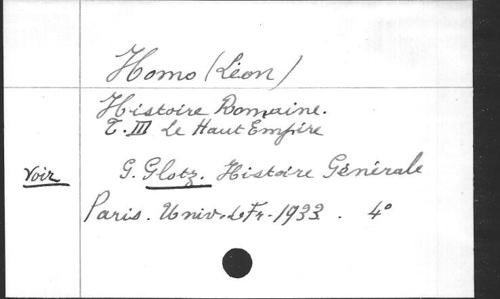 Homo (Léon)
Histoire Romaine.
T. III Le Haut Empire
voir G. Glotz. Histoire Générale
Paris. Univ. de Fr. 1933. 4°